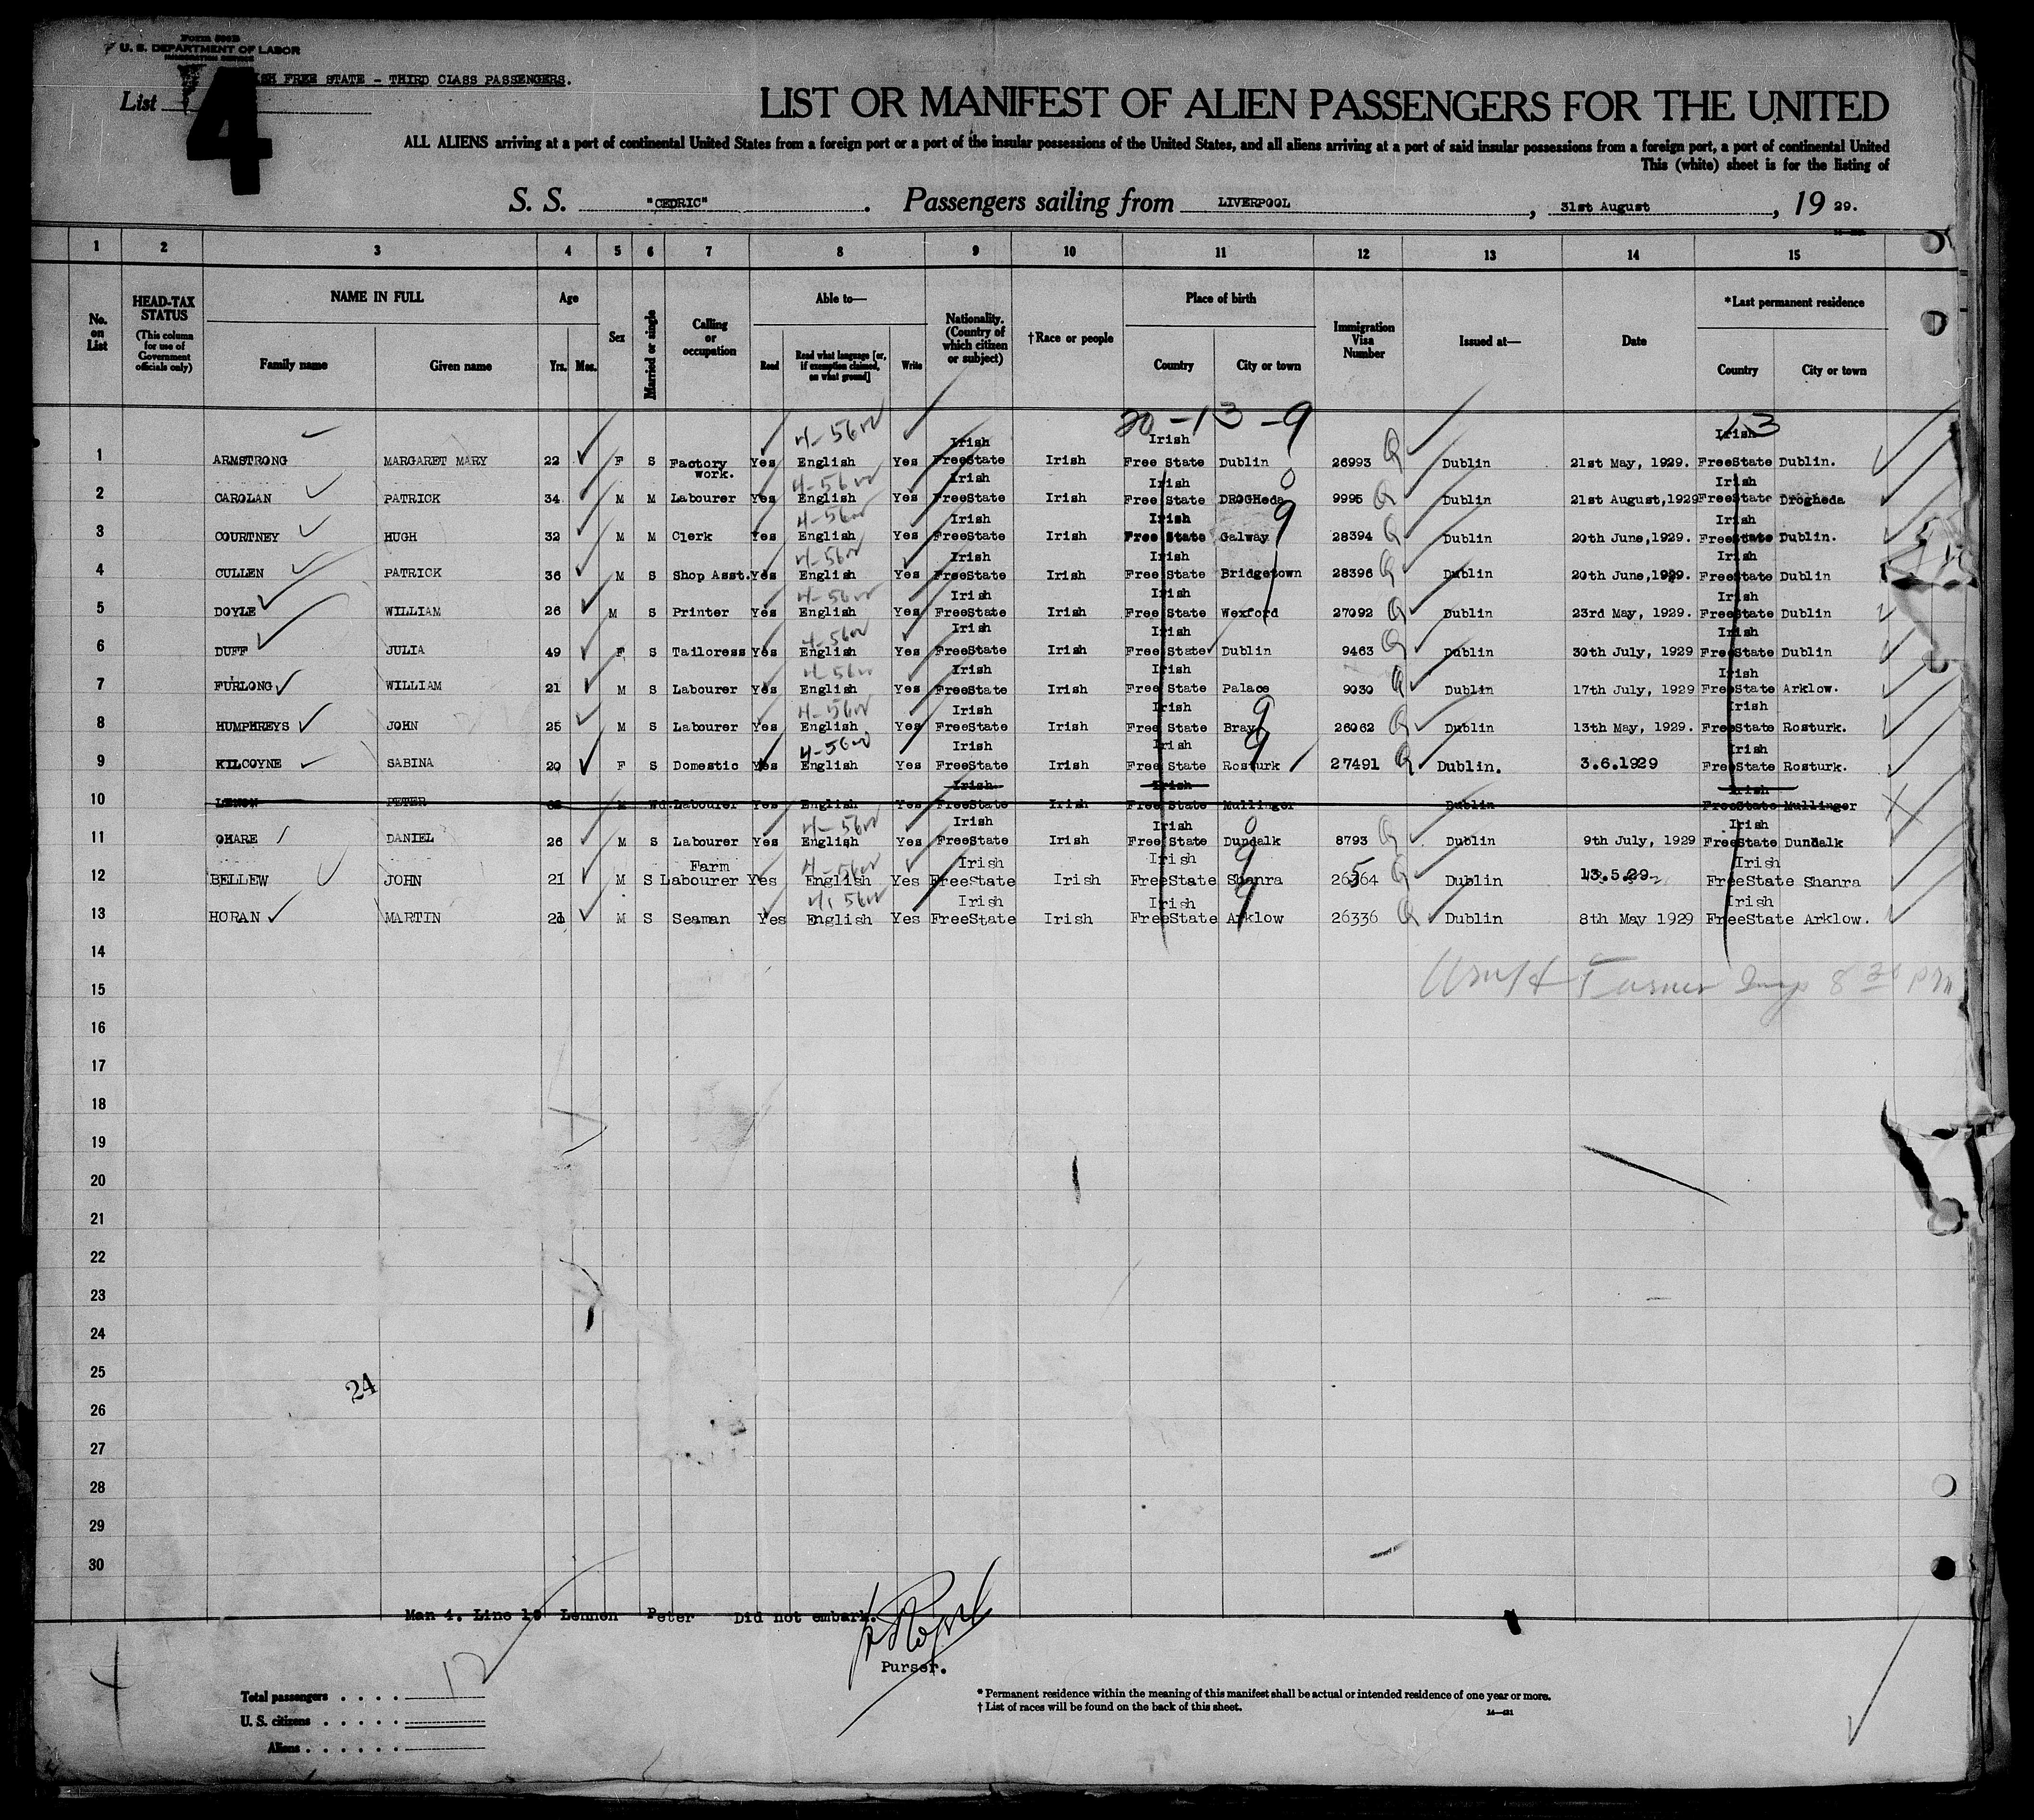 Form 500B
U. S. DEPARTMENT OF LABOR
FREE STATE - THIRD CLASS PASSENGERS.
List 4
LIST OR MANIFEST OF ALIEN PASSENGERS FOR THE UNITED
ALL ALIENS arriving at a port of continental United States from a foreign port or a port of the insular possessions of the United States, and all aliens arriving at a port of said insular possessions from a foreign port, a port of continental United
This (white) sheet is for the listing of
S. S. "CEDRIC". Passengers sailing from LIVERPOOL, 31st August, 19 29.
1 2 3 4 5 6 7 8 9 10 11 12 13 14 15
No. on List
HEAD-TAX STATUS (This column for use of Government officials only)
NAME IN FULL Family name Given name
Age Yrs. Mos.
Sex
Married or single
Calling or occupation
Able to— Read Read what language [or, if exemption claimed, on what ground] Write
Nationality. (Country of which citizen or subject)
†Race or people
Place of birth Country City or town
Immigration Visa Number
Issued at—
Date
*Last permanent residence Country City or town
20 -13 -9 13
1 ARMSTRONG MARGARET MARY 22 F S Factory work. Yes English Yes Irish FreeState Irish Irish Free State Dublin 26993 Q Dublin 21st May, 1929. Irish FreeState Dublin.
2 CAROLAN PATRICK 34 M M Labourer Yes English Yes Irish FreeState Irish Irish Free State DROGHeda 9995 Q Dublin 21st August,1929 Irish FreeState Drogheda
3 COURTNEY HUGH 32 M M Clerk Yes English Yes Irish FreeState Irish Irish Free State Galway 28394 Q Dublin 20th June,1929. Irish FreeState Dublin.
4 CULLEN PATRICK 36 M S Shop Asst. Yes English Yes Irish FreeState Irish Irish Free State Bridgetown 28396 Q Dublin 20th June,1929. Irish FreeState Dublin
5 DOYLE WILLIAM 26 M S Printer Yes English Yes Irish FreeState Irish Irish Free State Wexford 27092 Q Dublin 23rd May, 1929. Irish FreeState Dublin
6 DUFF JULIA 49 F S Tailoress Yes English Yes Irish FreeState Irish Irish Free State Dublin 9463 Q Dublin 30th July, 1929 Irish FreeState Dublin
7 FURLONG WILLIAM 21 M S Labourer Yes English Yes Irish FreeState Irish Irish Free State Palace 9030 Q Dublin 17th July, 1929 Irish FreeState Arklow.
8 HUMPHREYS JOHN 25 M S Labourer Yes English Yes Irish FreeState Irish Irish Free State Bray 26062 Q Dublin 13th May, 1929. Irish FreeState Rosturk.
9 KILCOYNE SABINA 20 F S Domestic Yes English Yes Irish FreeState Irish Irish Free State Rosturk 27491 Q Dublin. 3.6.1929 Irish FreeState Rosturk.
10 LENON PETER 62 M Wd Labourer Yes English Yes Irish FreeState Irish Irish Free State Mullinger Dublin Irish FreeState Mullinger
11 OHARE DANIEL 26 M S Labourer Yes English Yes Irish FreeState Irish Irish Free State Dundalk 8793 Q Dublin 9th July, 1929 Irish FreeState Dundalk
12 BELLEW JOHN 21 M S Farm Labourer Yes English Yes Irish FreeState Irish Irish FreeState Shanra 26564 Q Dublin 13.5.29 Irish FreeState Shanra
13 HORAN MARTIN 21 M S Seaman Yes English Yes Irish FreeState Irish Irish FreeState Arklow 26336 Q Dublin 8th May 1929 Irish FreeState Arklow.
14
15
16
17
18
19
20
21
22
23
24
25
24
26
27
28
29
30
Man 4. Line 10 Lennon Peter Did not embark.
Purser.
12
Total passengers
U. S. citizens
Aliens
* Permanent residence within the meaning of this manifest shall be actual or intended residence of one year or more.
† List of races will be found on the back of this sheet.